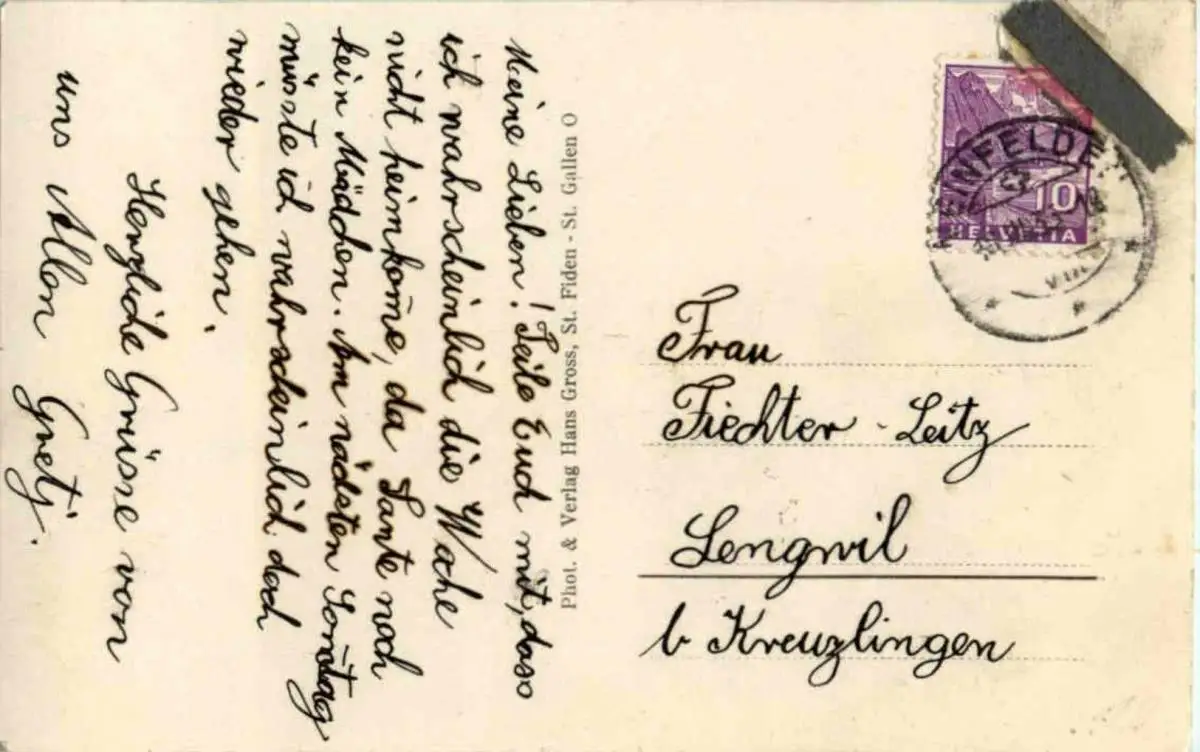 Meine Lieben! Teile Euch mit, dass
ich wahrscheinlich die Woche
nicht heimkom̄e, da Tante noch
kein Mädchen. Am nächsten Son̄tag
müsste ich wahrscheinlich doch
wieder gehen.
Herzliche Grüsse von
uns Allen Gretj.
Phot. & Verlag Hans Gross, St. Fiden - St. Gallen O
HELVETIA
10
Frau
Fiechter-Leitz
Lengwil
b Kreuzlingen